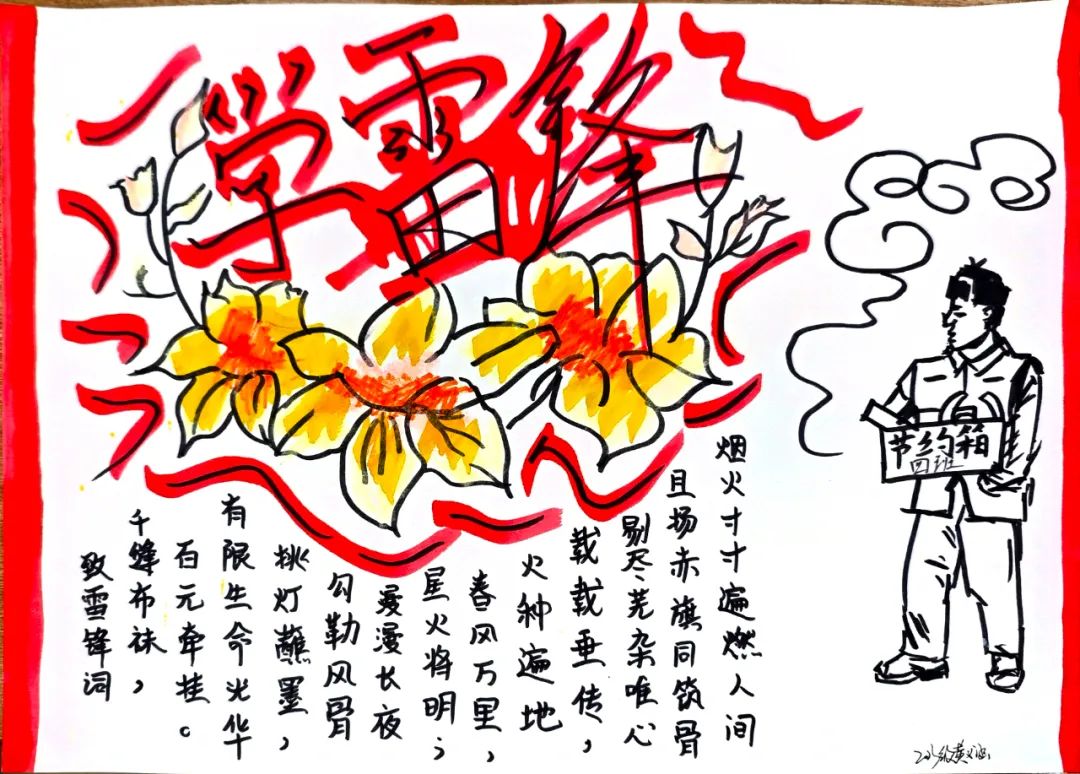 学雷锋
节约箱
四班
致雪锋词
千缝布袜，
百元牵挂。
有限生命光华
挑灯蘸墨，
勾勒风骨
漫漫长夜
星火将明；
春风万里，
火种遍地
载载垂传，
剔尽芜杂唯心
且扬赤旗同筑骨
烟火寸寸遍燃人间